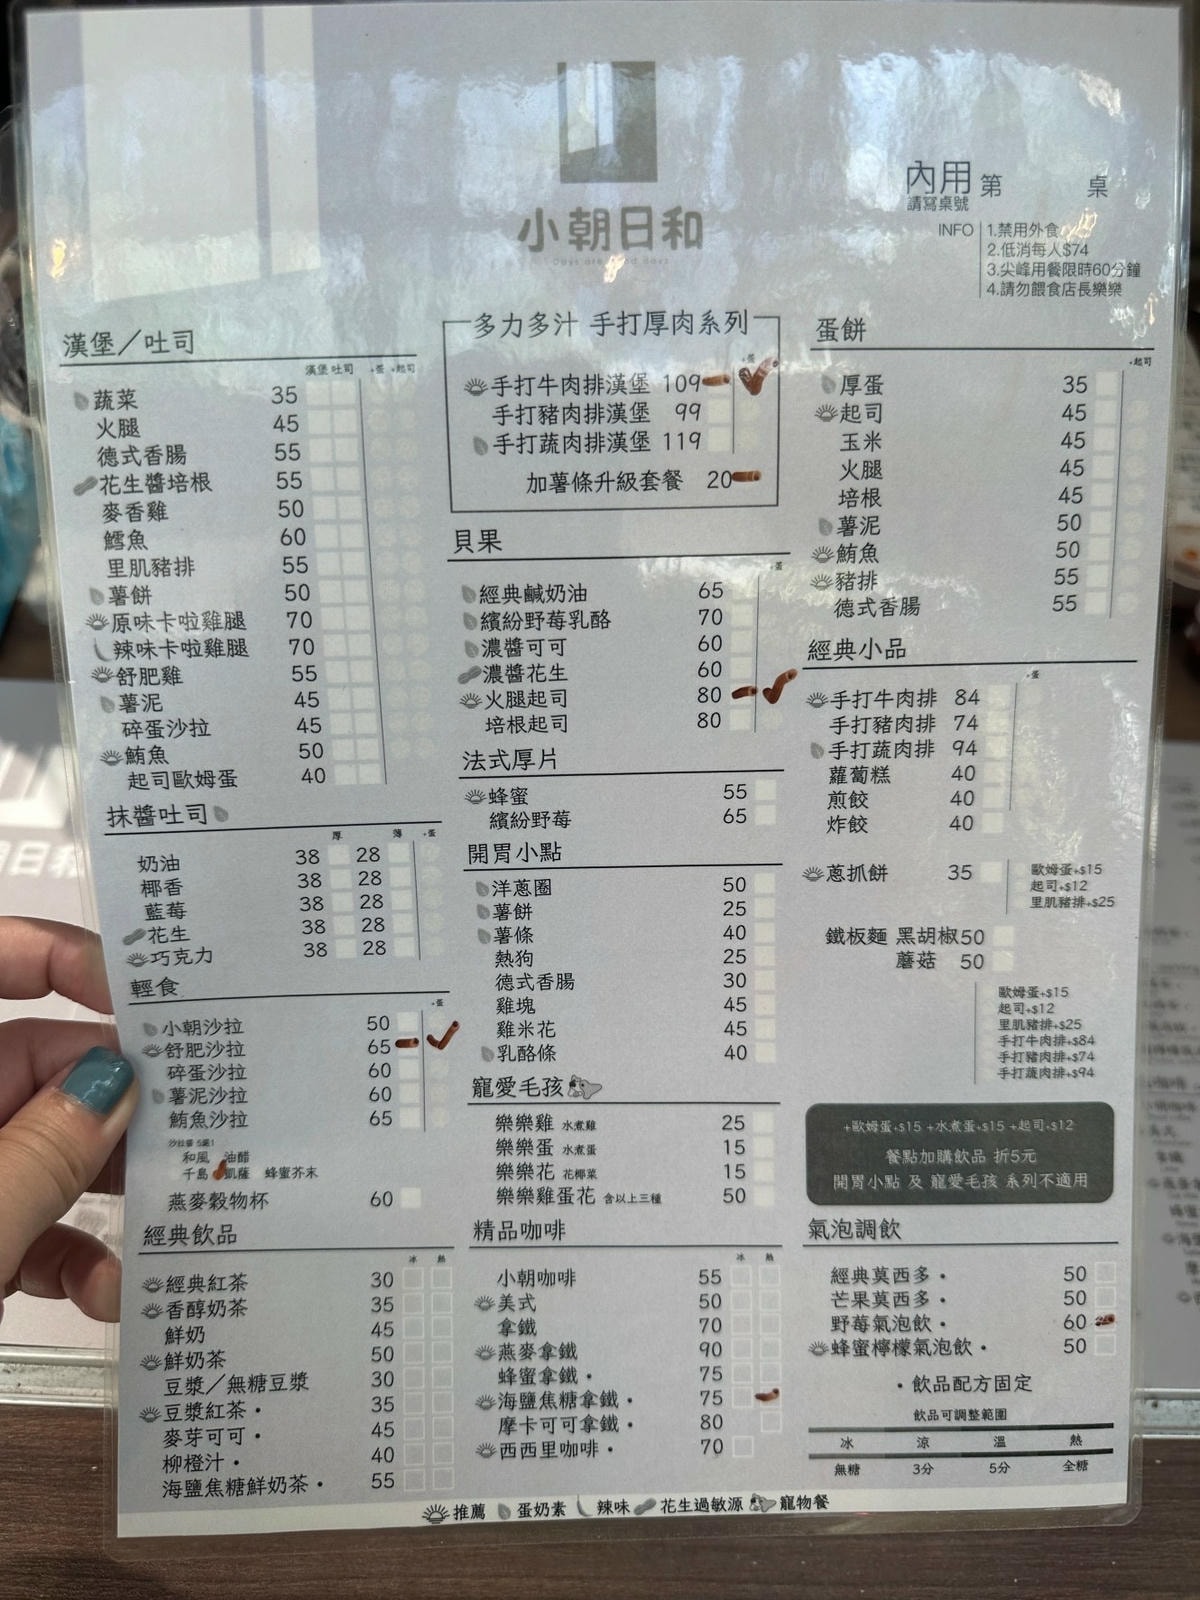 小朝日和
內用 第 桌
請寫桌號
INFO
1.禁用外食
2.低消每人$74
3.尖峰用餐限時60分鐘
4.請勿餵食店長樂樂
漢堡／吐司
漢堡 吐司 +蛋 +起司
蔬菜 35
火腿 45
德式香腸 55
花生醬培根 55
麥香雞 50
鱈魚 60
里肌豬排 55
薯餅 50
原味卡啦雞腿 70
辣味卡啦雞腿 70
舒肥雞 55
薯泥 45
碎蛋沙拉 45
鮪魚 50
起司歐姆蛋 40
抹醬吐司
厚 薄 +蛋
奶油 38 28
椰香 38 28
藍莓 38 28
花生 38 28
巧克力 38 28
輕食
+蛋
小朝沙拉 50
舒肥沙拉 65
碎蛋沙拉 60
薯泥沙拉 60
鮪魚沙拉 65
沙拉醬 5選1
和風 油醋
千島 凱薩 蜂蜜芥末
燕麥穀物杯 60
經典飲品
冰 熱
經典紅茶 30
香醇奶茶 35
鮮奶 45
鮮奶茶 50
豆漿／無糖豆漿 30
豆漿紅茶・ 35
麥芽可可・ 45
柳橙汁・ 40
海鹽焦糖鮮奶茶・ 55
多力多汁 手打厚肉系列
+蛋
手打牛肉排漢堡 109
手打豬肉排漢堡 99
手打蔬肉排漢堡 119
加薯條升級套餐 20
貝果
+蛋
經典鹹奶油 65
繽紛野莓乳酪 70
濃醬可可 60
濃醬花生 60
火腿起司 80
培根起司 80
法式厚片
蜂蜜 55
繽紛野莓 65
開胃小點
洋蔥圈 50
薯餅 25
薯條 40
熱狗 25
德式香腸 30
雞塊 45
雞米花 45
乳酪條 40
寵愛毛孩
樂樂雞 水煮雞 25
樂樂蛋 水煮蛋 15
樂樂花 花椰菜 15
樂樂雞蛋花 含以上三種 50
精品咖啡
冰 熱
小朝咖啡 55
美式 50
拿鐵 70
燕麥拿鐵 90
蜂蜜拿鐵・ 75
海鹽焦糖拿鐵・ 75
摩卡可可拿鐵・ 80
西西里咖啡・ 70
蛋餅
+起司
厚蛋 35
起司 45
玉米 45
火腿 45
培根 45
薯泥 50
鮪魚 50
豬排 55
德式香腸 55
經典小品
+蛋
手打牛肉排 84
手打豬肉排 74
手打蔬肉排 94
蘿蔔糕 40
煎餃 40
炸餃 40
蔥抓餅 35
歐姆蛋+$15
起司+$12
里肌豬排+$25
鐵板麵 黑胡椒50
蘑菇 50
歐姆蛋+$15
起司+$12
里肌豬排+$25
手打牛肉排+$84
手打豬肉排+$74
手打蔬肉排+$94
+歐姆蛋+$15 +水煮蛋+$15 +起司+$12
餐點加購飲品 折5元
開胃小點 及 寵愛毛孩 系列不適用
氣泡調飲
經典莫西多・ 50
芒果莫西多・ 50
野莓氣泡飲・ 60
蜂蜜檸檬氣泡飲・ 50
・飲品配方固定
飲品可調整範圍
冰 涼 溫 熱
無糖 3分 5分 全糖
推薦 蛋奶素 辣味 花生過敏源 寵物餐